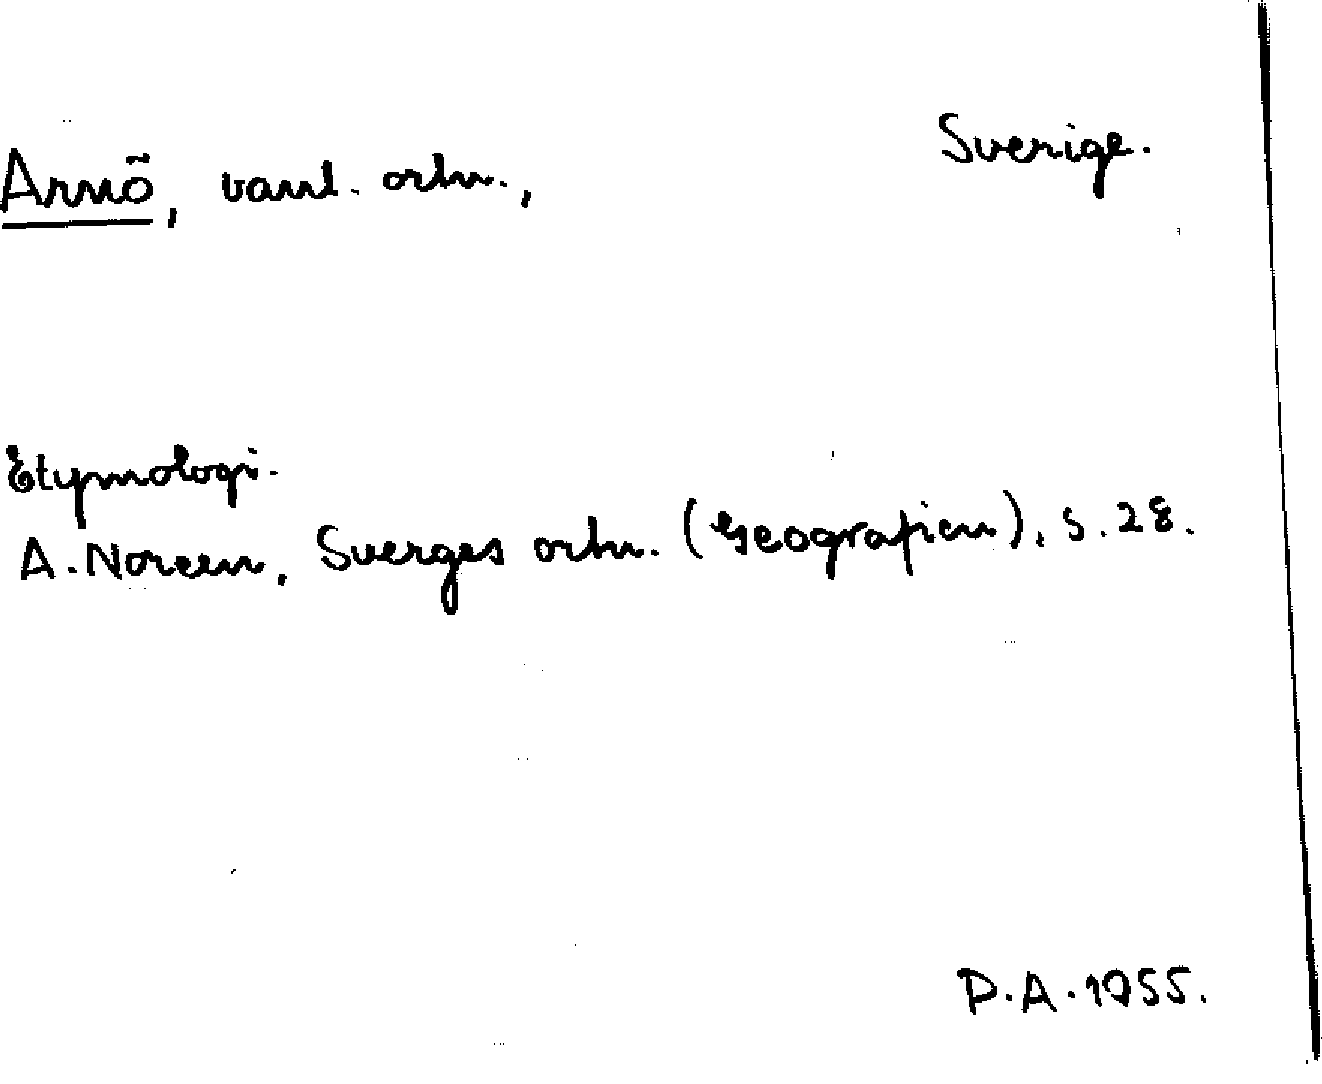 Sverige.
Arnö, vanl. ortn.,
Etymologi.
A. Noreen, Sverges ortn. (Geografien), s. 28.
P.A. 1955.